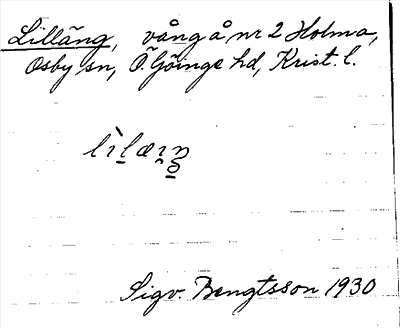 Lilläng, vång å nr 2 Holma,
Osby sn, Ö. Göinge hd, Krist. l.
Sigv. Bengtsson 1930